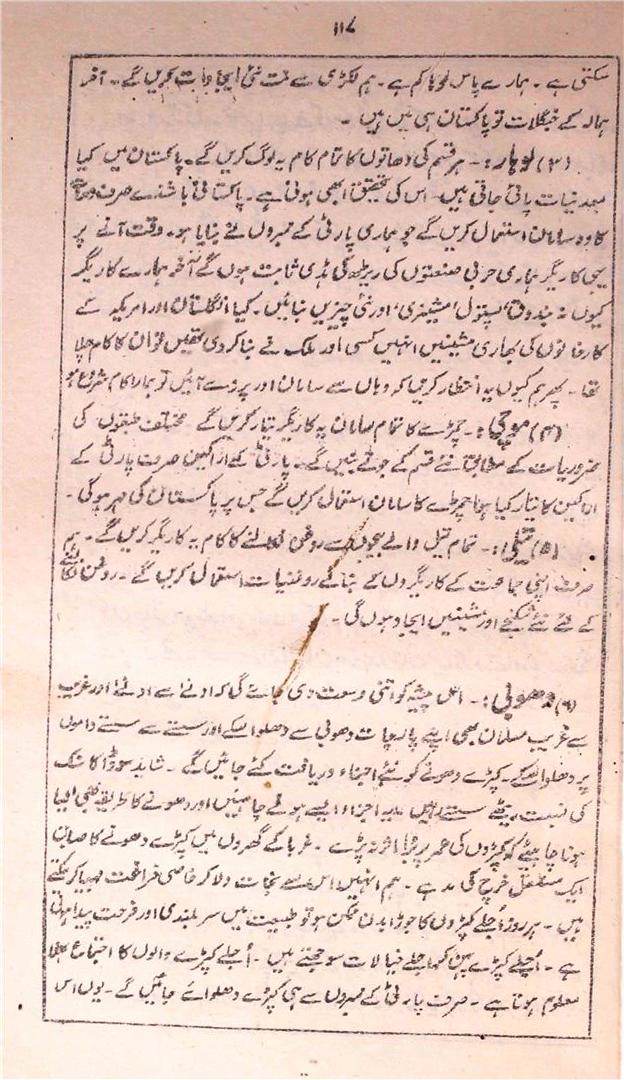 ۱۱۷
سکتی ہے۔ ہمارے پاس لوہا کم ہے۔ ہم لکڑی سے نت نئی ایجادات کریں گے۔ آخر
ہمالہ کے جنگلات تو پاکستان ہی میں ہیں۔
(۳) لوہار:۔ ہر قسم کی دھاتوں کا تمام کام یہ لوگ کریں گے۔ پاکستان میں کیا کیا
معدنیات پائی جاتی ہیں۔ اس کی تحقیق ابھی ہونی ہے۔ پاکستانی باشندے صرف دھات
کا وہ سامان استعمال کریں گے جو ہماری پارٹی کے ممبروں نے بنایا ہو۔ وقت آنے پر
یہی کاریگر ہماری حربی صنعتوں کی ریڑھ کی ہڈی ثابت ہوں گے آخر ہمارے کاریگر
کیوں نہ بندوق، پستول، مشینری، اور نئی چیزیں بنائیں۔ کیا انگلستان اور امریکہ کے
کارخانوں کی بھاری مشینیں انہیں کسی اور ملک نے بنا کر دی تھیں تو ان کا کام چلا
تھا۔ پھر ہم کیوں یہ انتظار کریں کہ وہاں سے سامان اور پرزے آئیں تو ہمارا کام شروع ہو
(۴) موچی:۔ چمڑے کا تمام سامان یہ کاریگر تیار کریں گے مختلف طبقوں کی
ضروریات کے مطابق نئے قسم کے جوتے بنیں گے۔ پارٹی کے اراکین صرف پارٹی کے
اراکین کا تیار کیا ہوا چمڑے کا سامان استعمال کریں گے جس پر پاکستان کی مہر ہوگی۔
(۵) تیلی:۔ تمام تیل والے بیجوں سے روغن نکالنے کا کام یہ کاریگر کریں گے۔ ہم
صرف اپنی جماعت کے کاریگروں کے بنائے روغنیات استعمال کریں گے۔ روغن نکالنے
کے لئے نئے شکنجے اور مشینیں ایجاد ہوں گی۔
(۶) دھوبی:۔ اس پیشہ کو اتنی وسعت دی جائے گی کہ ادنےٰ سے ادنےٰ اور غریب
سے غریب مسلمان بھی اپنے پارچات دھوبی سے دھلوا سکے اور سستے سے سستے داموں
پر دھلوا سکے۔ کپڑے دھونے کو نئے اجزاء دریافت کئے جائیں گے۔ شاید سوڈا کاسٹک
کی نسبت ریٹھے سستے رہیں اجزاء ایسے ہونے چاہئیں اور دھونے کا طریقہ بھی ایسا
ہونا چاہیئے کہ کپڑوں کی عمر پر بڑا اثر نہ پڑے۔ غربا کے گھروں میں کپڑے دھونے کا صابن
ایک مستقل خرچ کی مد ہے۔ ہم انہیں اس سے نجات دلا کر خاصی فراغت مہیا کر سکتے
ہیں۔ ہر روز اُجلے کپڑوں کا جوڑا بدلنا ممکن ہو تو طبیعت میں سر بلندی اور فرحت پیدا ہوتی
ہے۔ اُجلے کپڑے پہن کر اُجلے خیالات سوجھتے ہیں۔ اُجلے کپڑے والوں کا اجتماع بھلا
معلوم ہوتا ہے۔ صرف پارٹی کے ممبروں سے ہی کپڑے دھلوائے جائیں گے۔ یوں اس